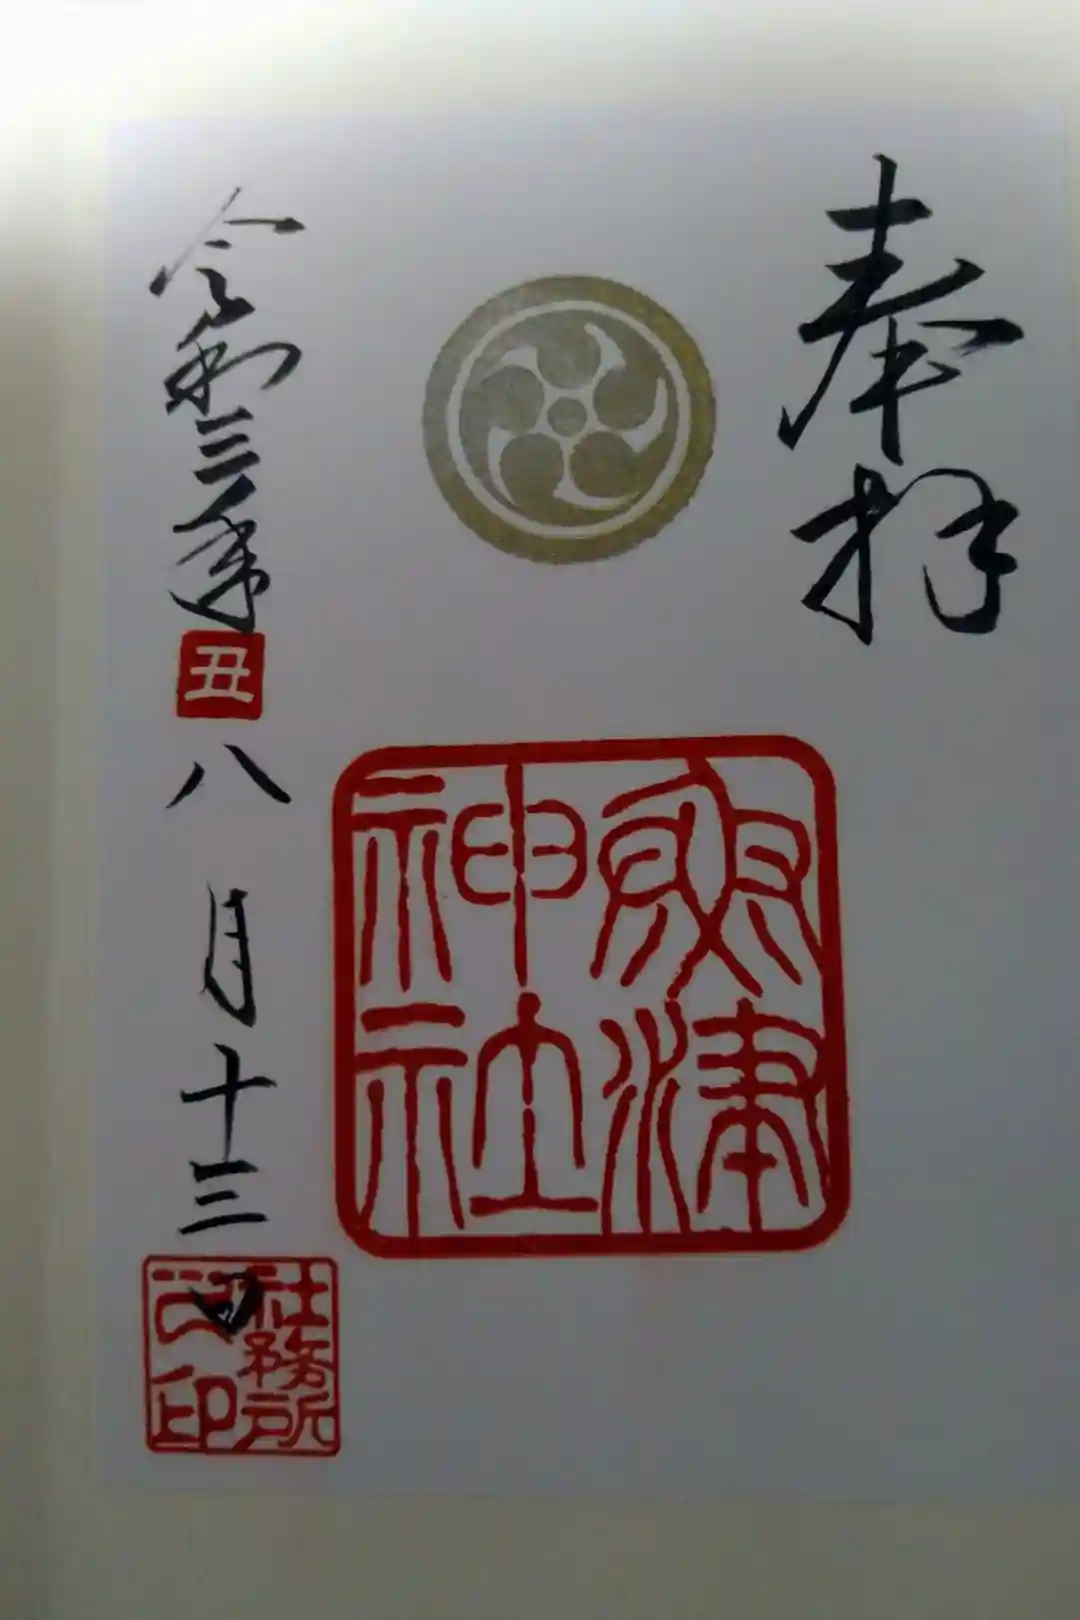 奉拝
津
神社
令和三年丑八月十三日
社務所
之印